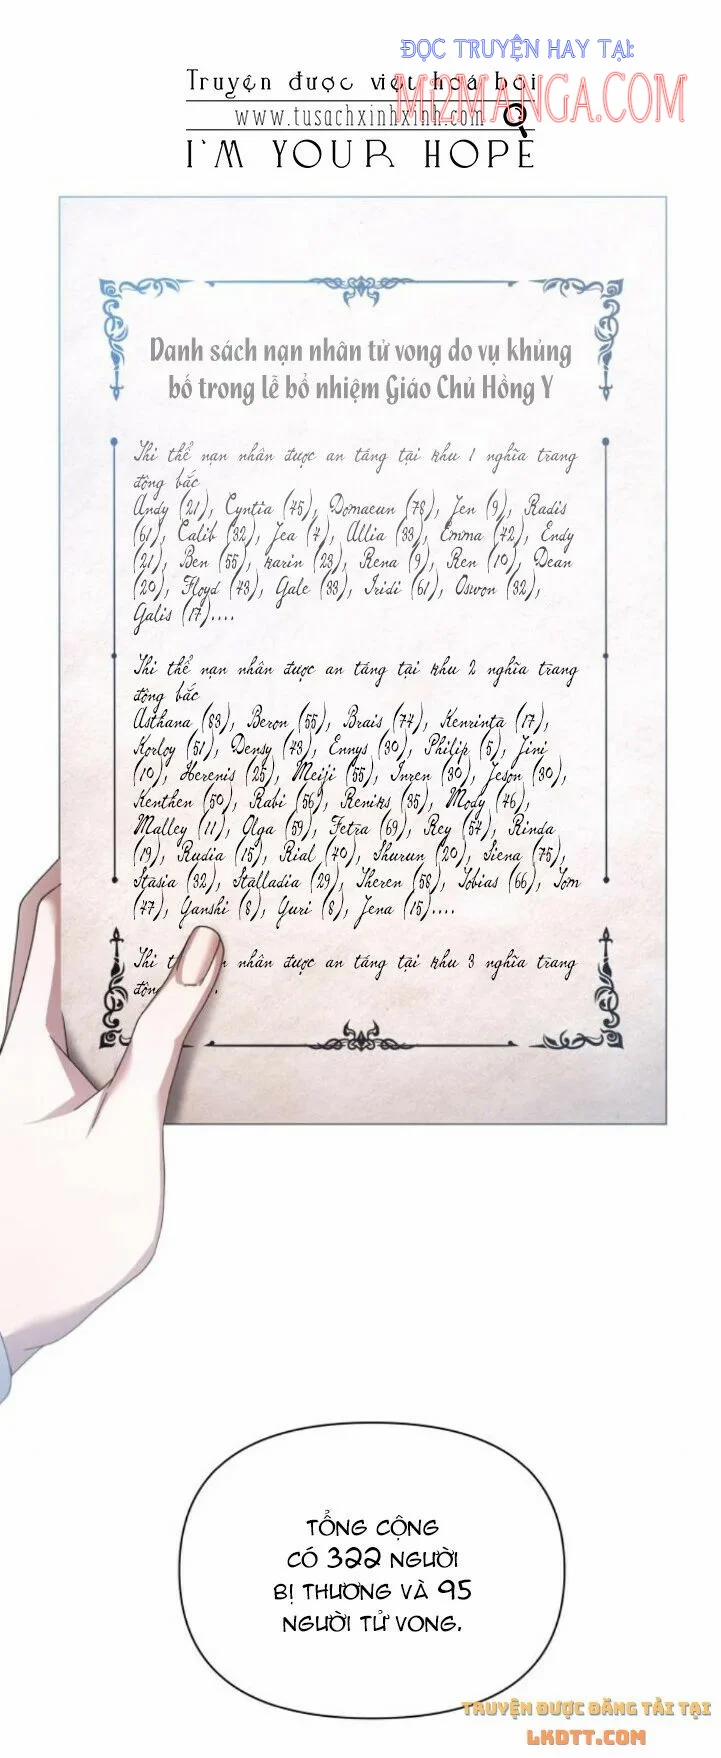 ĐỌC TRUYỆN HAY TẠI:
Truyện được việt hoá bởi
MI2MANGA.COM
www.tusachxinhxinh.com
I'M YOUR HOPE
Danh sách nạn nhân tử vong do vụ khủng
bố trong lễ bổ nhiệm Giáo Chủ Hồng Y
Thi thể nạn nhân được an táng tại khu 1 nghĩa trang
đông bắc
Andy (21), Cyntia (45), Domaeun (78), Jen (9), Radis
(61), Calib (32), Jea (4), Allia (33), Emma (42), Endy
(21), Ben (55), karin (23), Rena (9), Ren (10), Dean
(20), Floyd (43), Gale (33), Iridi (61), Oswon (32),
Galis (17)....
Thi thể nạn nhân được an táng tại khu 2 nghĩa trang
đông bắc
Asthana (83), Beron (55), Brais (74), Kenrinta (17),
Korloy (51), Densy (43), Ennys (30), Philip (5), Jini
(10), Herenis (25), Meiji (55), Inren (30), Jeson (30),
Kenthen (50), Rabi (56), Reniks (35), Mody (46),
Malley (11), Olga (59), Fetra (69), Rey (54), Rinda
(19), Rudia (15), Rial (40), Shurun (20), Siena (75),
Stasia (32), Stalladia (29), Theren (58), Tobias (66), Tom
(47), Ganshi (8), Yuri (8), Jena (15)....
Thi nhân được an táng tại khu 3 nghĩa trang
TỔNG CỘNG
CÓ 322 NGƯỜI
BỊ THƯƠNG VÀ 95
NGƯỜI TỬ VONG.
TRUYỆN ĐƯỢC ĐĂNG TẢI TẠI
LKDTT.COM